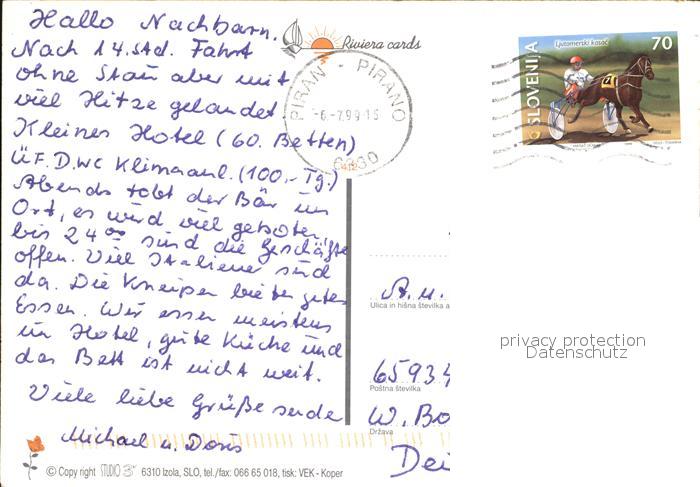 Hallo Nachbarn.
Nach 14. Std. Fahrt
ohne Stau aber mit
viel Hitze gelandet.
Kleines Hotel (60. Betten)
ÜF. D. WC Klimaanl. (100,- Tg.)
Abends tobt der Bär im
Ort, es wird viel geboten,
bis 24 00 sind die Geschäfte
offen. Viel Italiener sind
da. Die Kneipen bieten gutes
Essen. Wir essen meistens
im Hotel, gute Küche und
das Bett ist nicht weit.
Viele liebe Grüße sende
Michael u. Doris
© Copy right STUDIO 6310 Izola, SLO, tel./fax: 066 65 018, tisk: VEK - Koper
Riviera cards
PIRAN - PIRANO
-6.-7.99-15
6330
SLOVENIJA
Ljutomerski kasač
70
A. u.
Ulica in hišna številka a
65934
Poštna številka
W. Bo
Država
privacy protection
Datenschutz